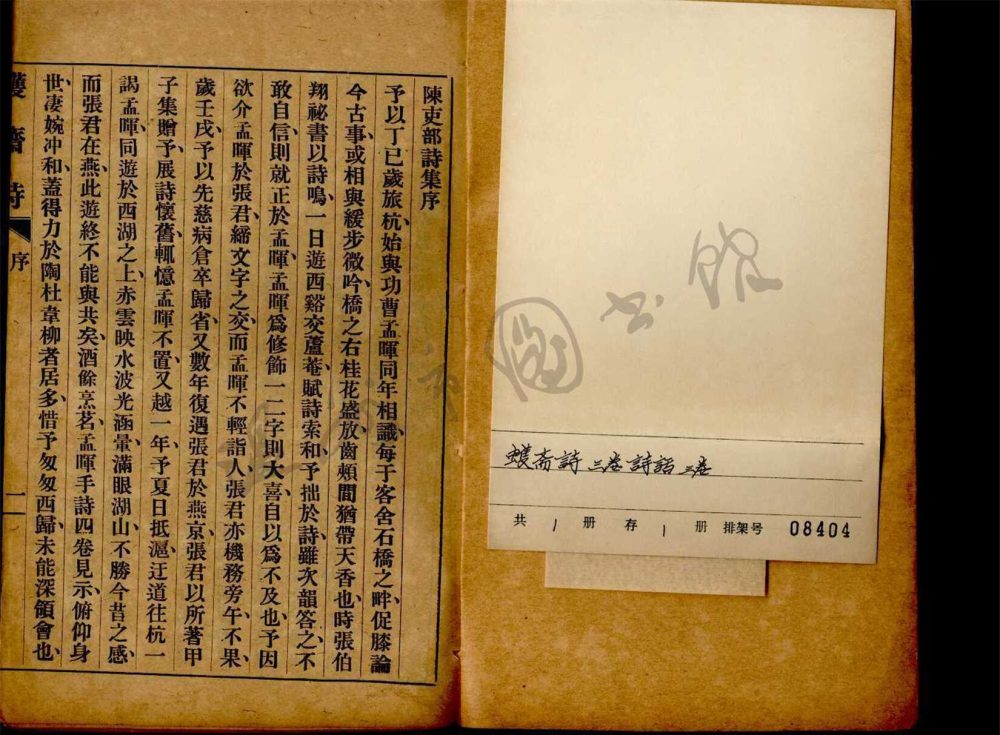 陳吏部詩集序
予以丁巳歲旅杭、始與功曹孟暉同年相識、每于客舍石橋之畔、促膝論
今古事、或相與緩步微吟、橋之右桂花盛放、齒頰間猶帶天香也、時張伯
翔祕書以詩鳴、一日遊西谿交蘆菴、賦詩索和、予拙於詩、雖次韻答之、不
敢自信、則就正於孟暉、孟暉爲修飾一二字、則大喜、自以爲不及也、予因
欲介孟暉於張君、締文字之交、而孟暉不輕詣人、張君亦機務旁午、不果、
歲壬戌、予以先慈病倉卒歸省、又數年復遇張君於燕京、張君以所著甲
子集贈予、展詩懷舊、輒憶孟暉不置、又越一年、予夏日抵滬、迂道往杭一
謁孟暉、同遊於西湖之上、赤雲映水、波光涵暈、滿眼湖山、不勝今昔之感、
而張君在燕、此遊終不能與共矣、酒餘烹茗、孟暉手詩四卷見示、俯仰身
世、淒婉冲和、蓋得力於陶杜韋柳者居多、惜予匆匆西歸、未能深領會也、
蠖齋詩
序
一
圖书館
蠖斋詩 三卷 詩話 二卷
共 1 册 存 1 册 排架号 08404